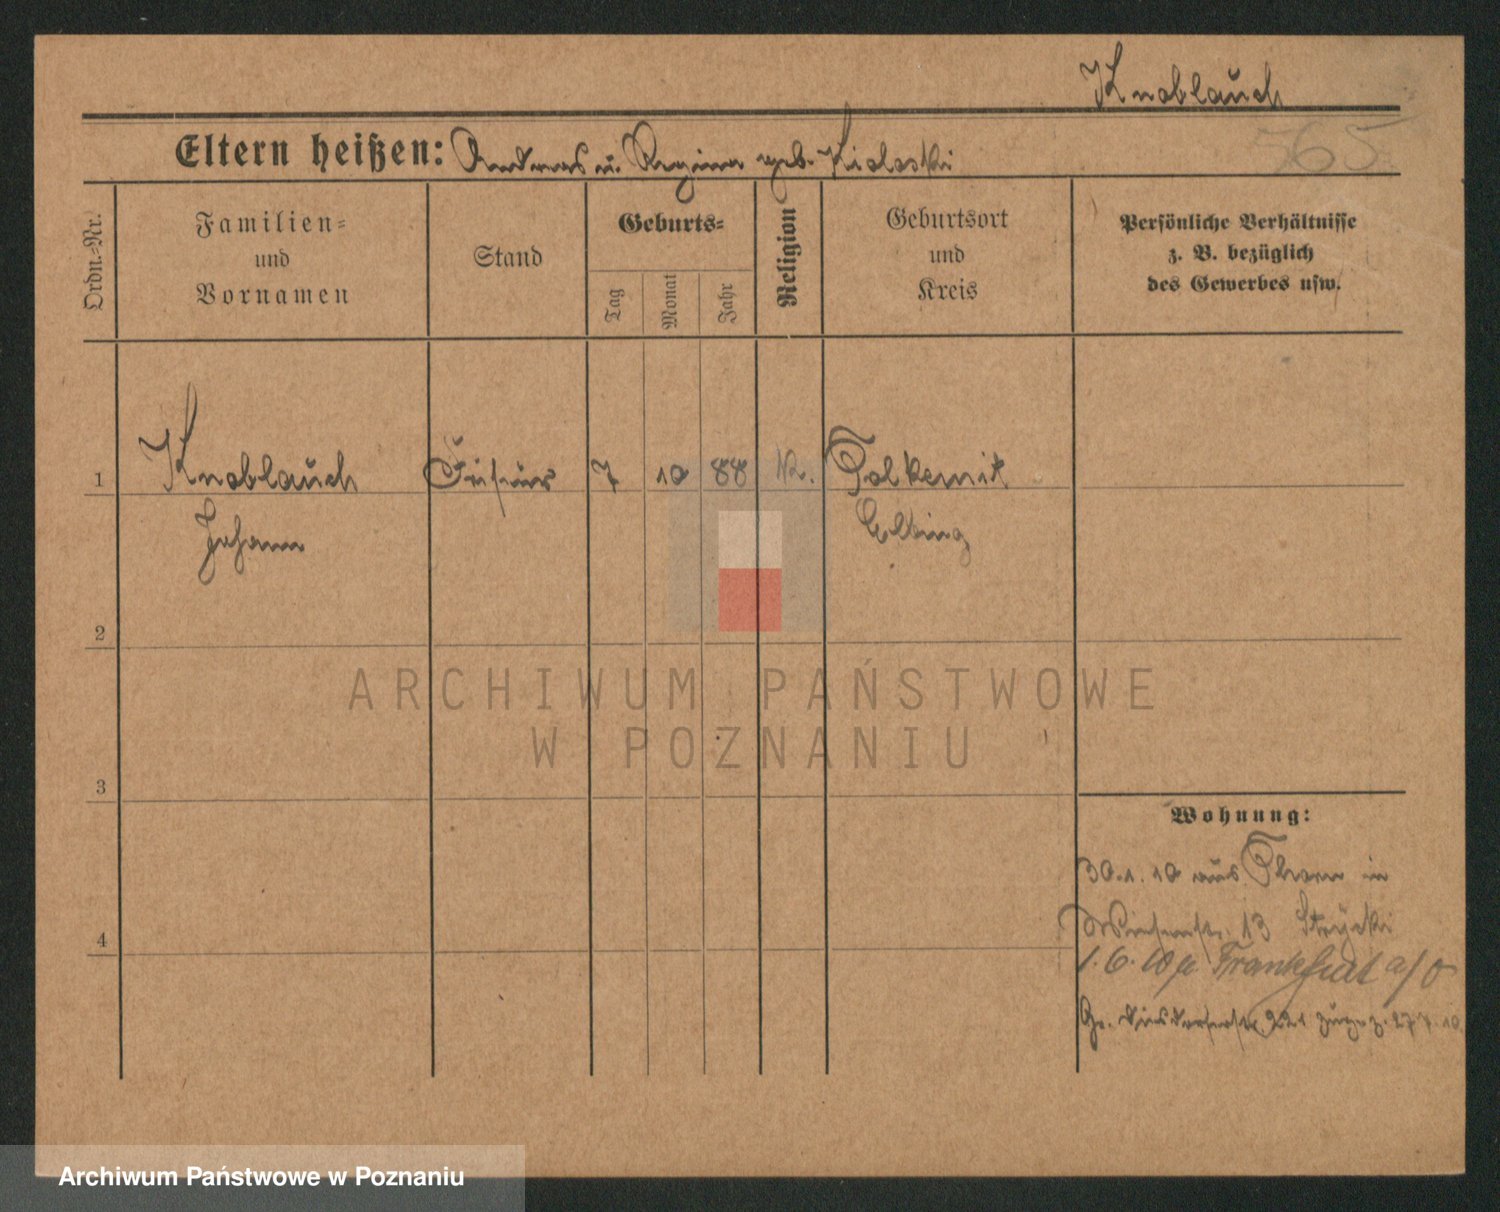 Knoblauch
765
Eltern heißen: Andreas u. Regina geb. Kioloski
Ordn.-Nr.
Familien-
und
Vornamen
Stand
Geburts-
Tag
Monat
Jahr
Religion
Geburtsort
und
Kreis
Persönliche Verhältnisse
z. B. bezüglich
des Gewerbes usw.
1 Knoblauch Friseur 7 10 88 K. Tolkemit
Johann Elbing
2
3
4
ARCHIWUM PAŃSTWOWE
W POZNANIU
Wohnung:
30.1.10 aus Thorn in
Wiesenstr. 13 Strycki
1.6.10 Frankfurt a/O
Gr. 221 27.7.10
Archiwum Państwowe w Poznaniu